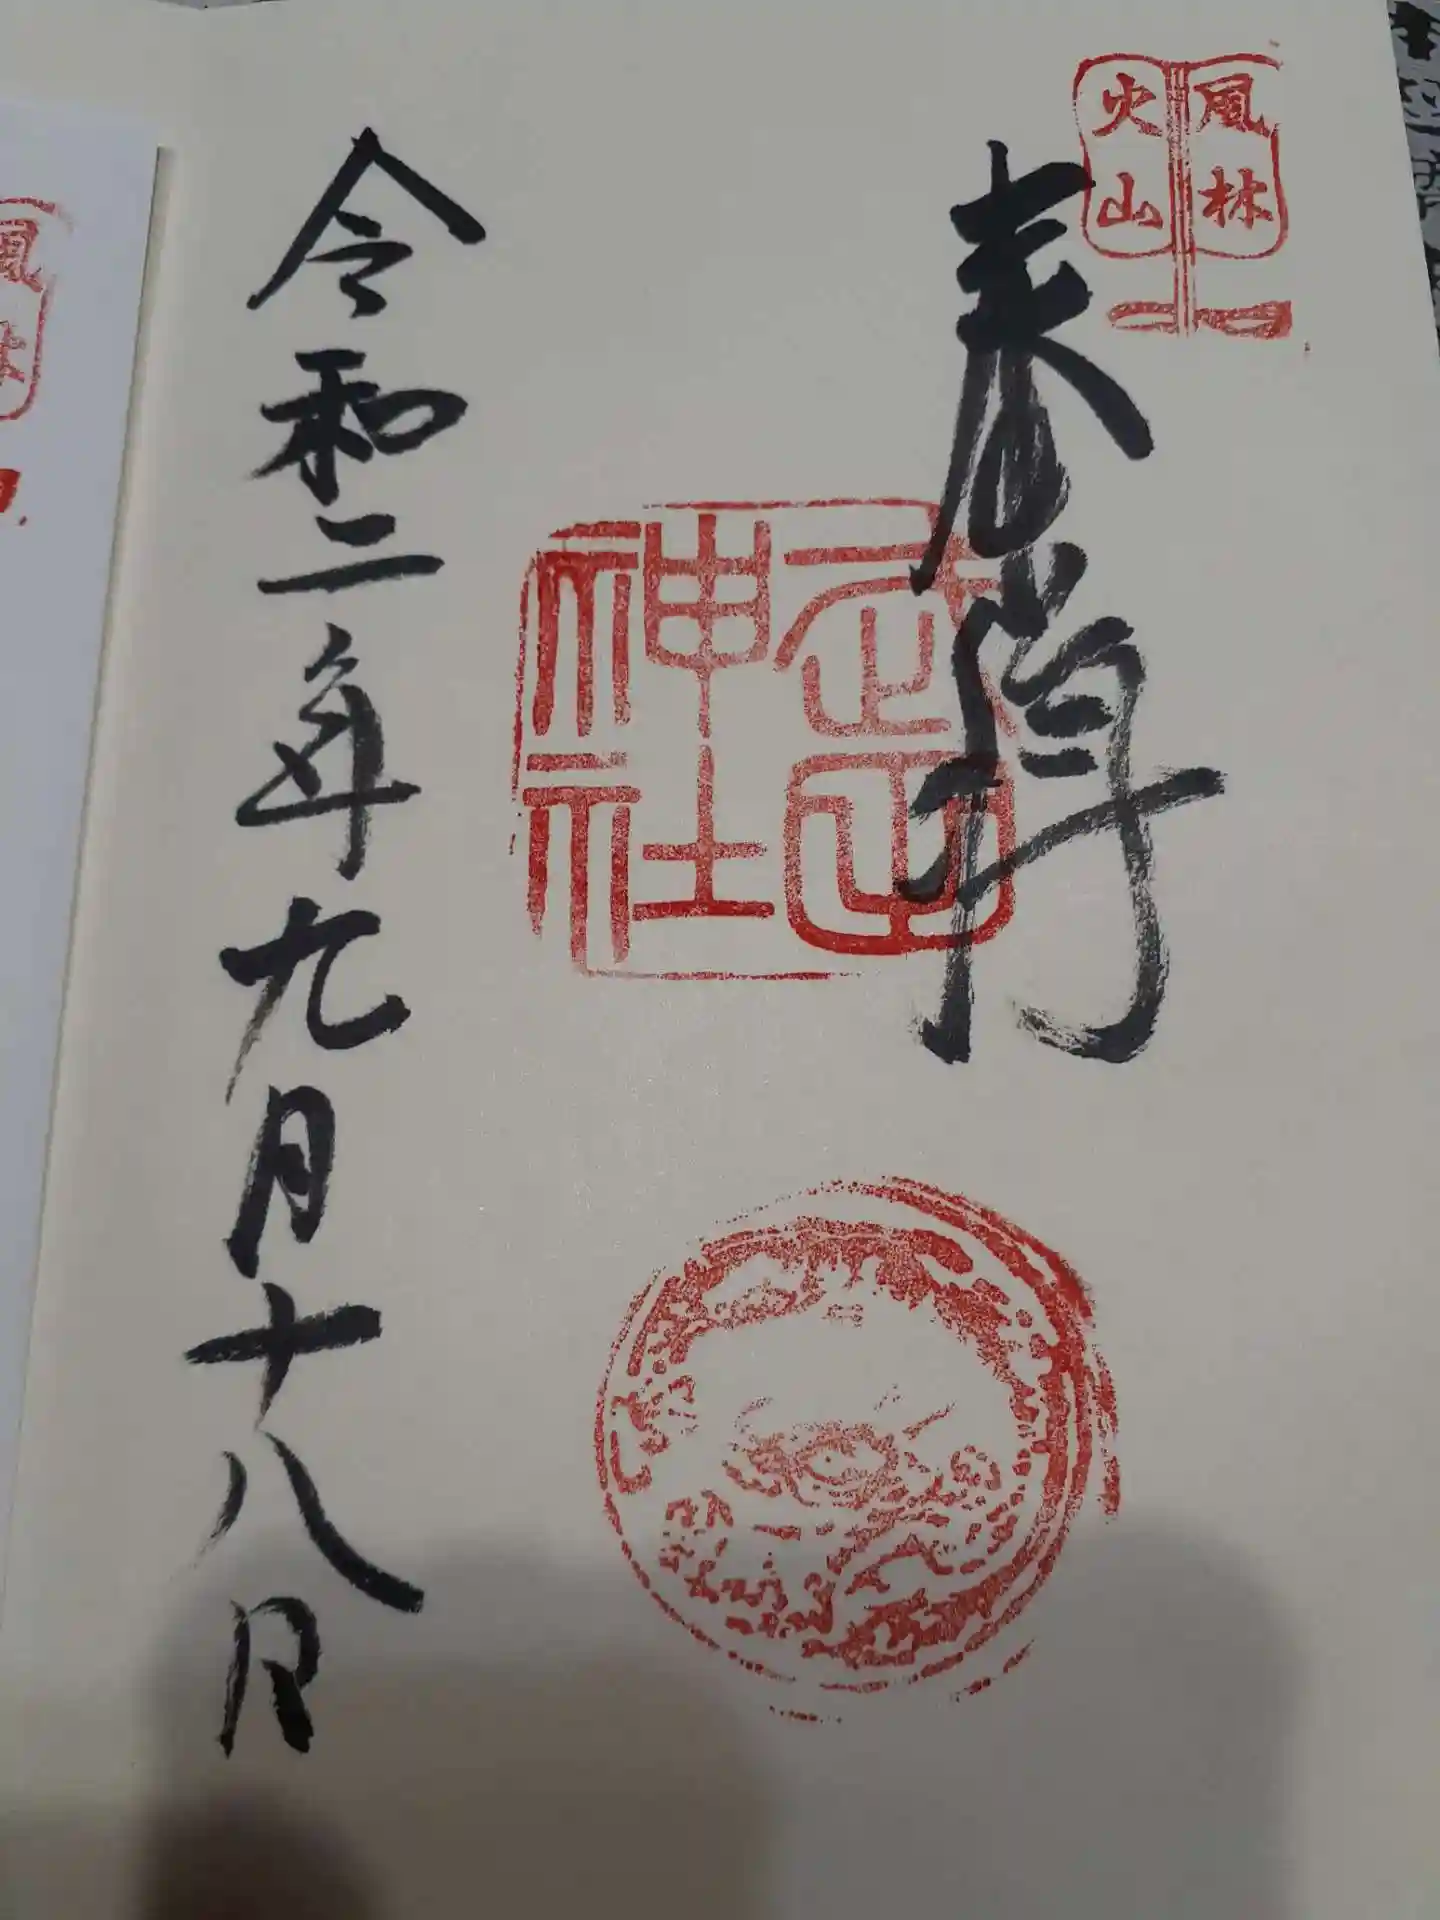 風林
火山
奉拝
武田
神社
令和二年九月十八日
風
林